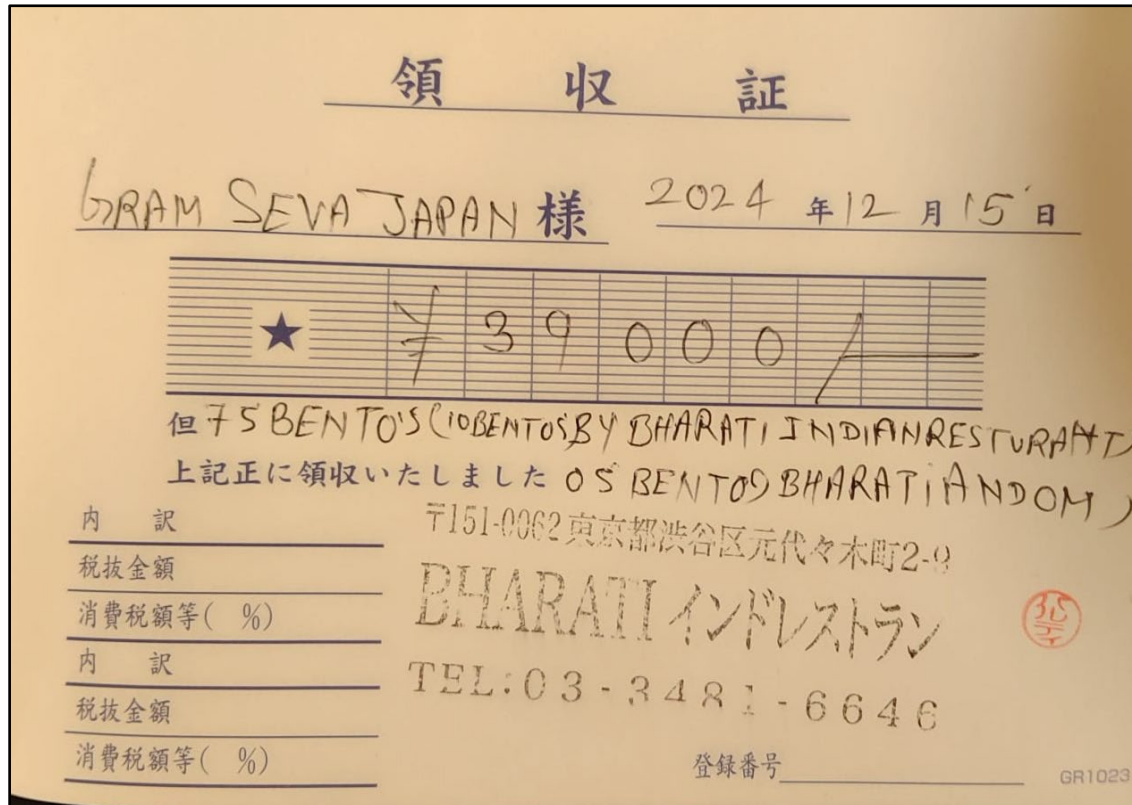 領 収 証
GRAM SEVA JAPAN 様 2024 年 12 月 15 日
★ ¥ 39000/
但 75 BENTO'S (10BENTO'S BY BHARATI INDIAN RESTURANT)
上記正に領収いたしました 05 BENTOS BHARATI ANDOM)
内 訳
税抜金額
消費税額等( %)
内 訳
税抜金額
消費税額等( %)
〒151-0062 東京都渋谷区元代々木町2-9
BHARATI インドレストラン
TEL:03-3481-6646
登録番号
GR1023